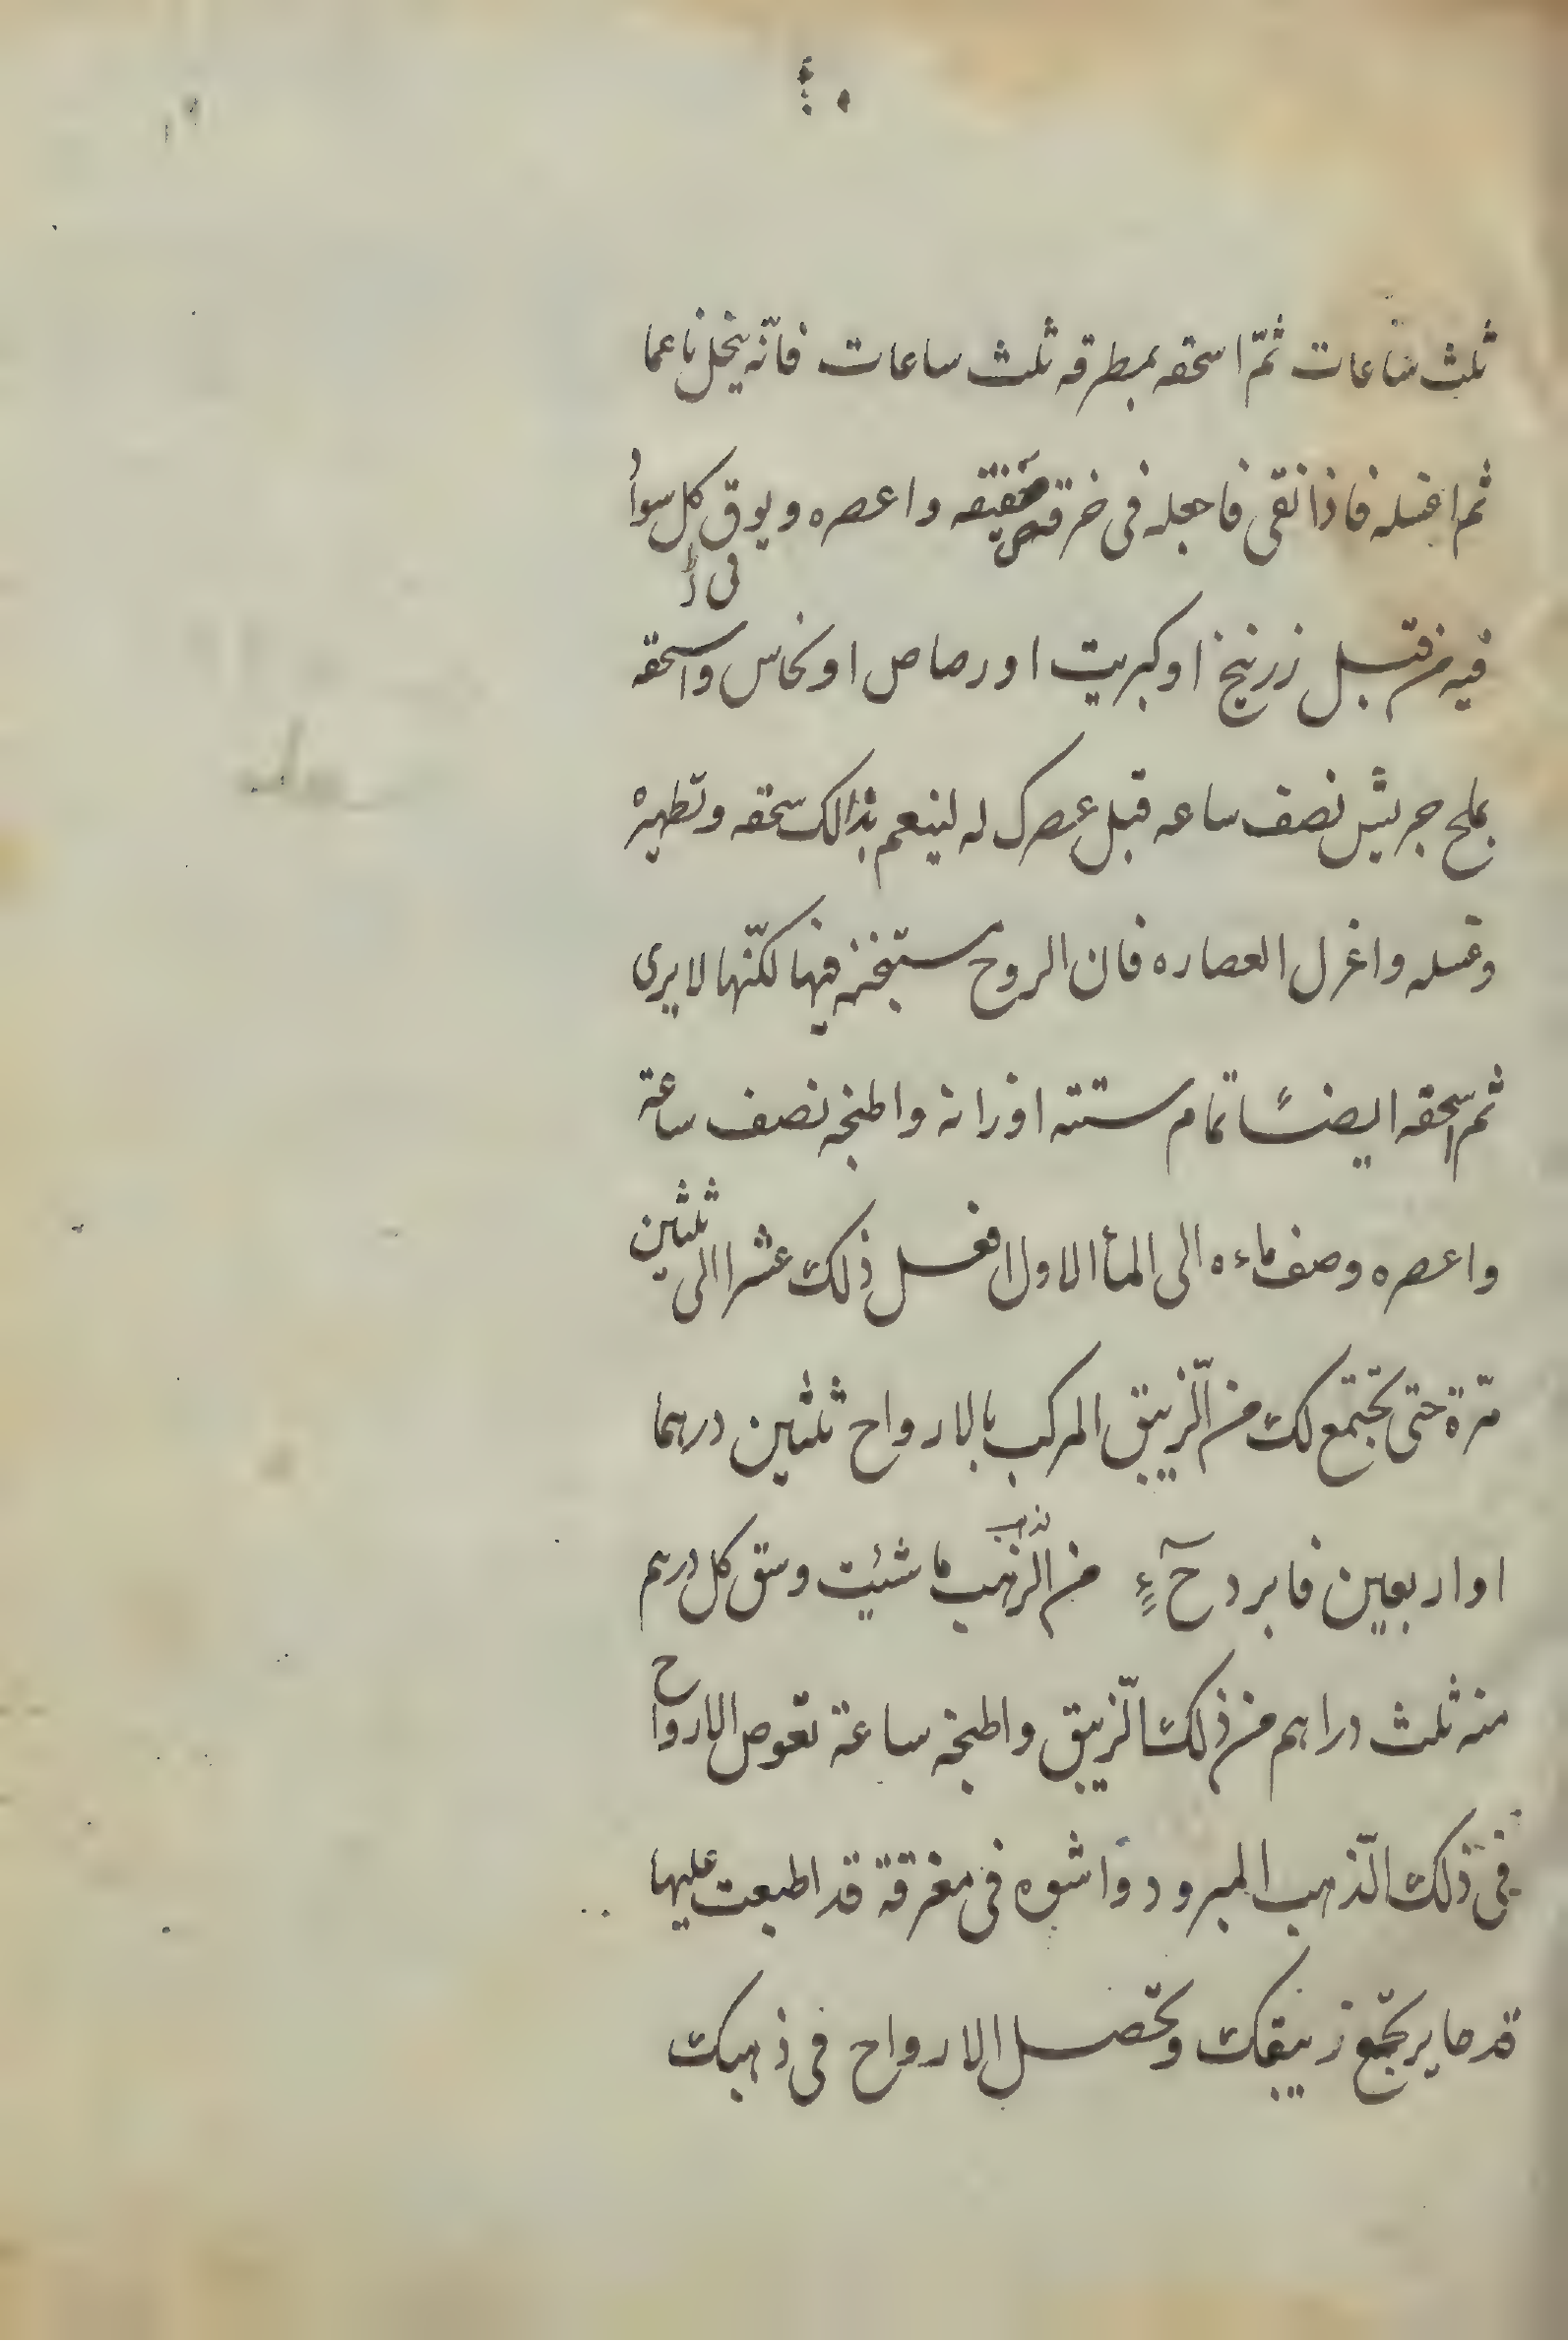 ثلث ساعات ثمّ اسحقه بمطرقه ثلث ساعات فانّه ينحل ناعما
ثم اغسله فاذا نقى فاجعله فى خرقه صفيقه واعصره ويوق كل سواد
فيه من قبل زرنيخ او كبريت او رصاص او نحاس واسحقه
بملح جريش نصف ساعه قبل عصرك له لينعم بذالك سحقه وتطهيره
وغسله واغزل العصاره فان الروح مستجنه فيها لكنّها لا يرى
ثم اسحقه ايضًا تمام ستته اوزانة واطبخه نصف ساعة
واعصره وصف ماءه الى المأ الاول افعل ذلك عشرا الى ثلثين
مّرة حتى تجتمع لك من الّزيبق المركب بالارواح ثلثين درهما
او اربعين فابرد من الّزهب ما شئيت وسق كل درهم
ذهب
منه ثلث دراهم من ذلك الّزيبق واطبخه ساعة تغوص الارواح
فى ذلك الّذهب المبرود واشوه فى مغرقة قد اطبعت عليها
قدحا يرتجّع زيبقك وتّحصل الارواح فى ذهبك